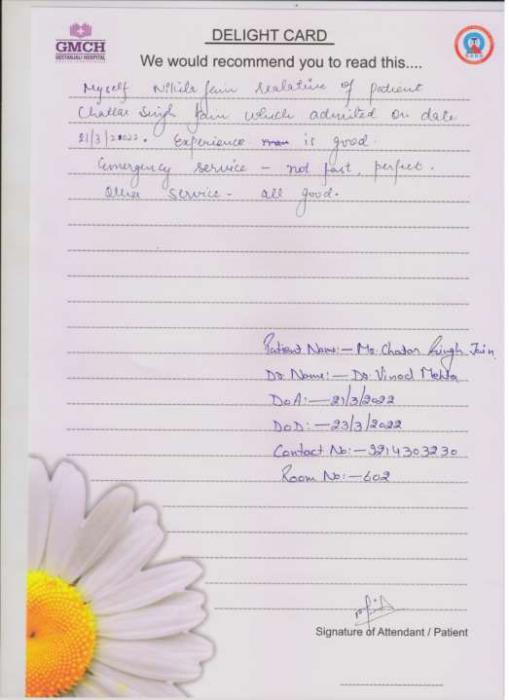 GMCH
GEETANJALI HOSPITAL
DELIGHT CARD
We would recommend you to read this....
Myself Nikila Jain realative of patient
Chattar Singh Jain which admited on date
21/3/2022. Experience is good.
Emergency service - not fast, perfect.
Other service - all good.
Patient Name:- Mr. Chatar Singh Jain
Dr. Name:- Dr. Vinod Mehta
DOA:- 21/3/2022
DOD:- 23/3/2022
Contact No:- 9914303230
Room No:- 602
Signature of Attendant / Patient